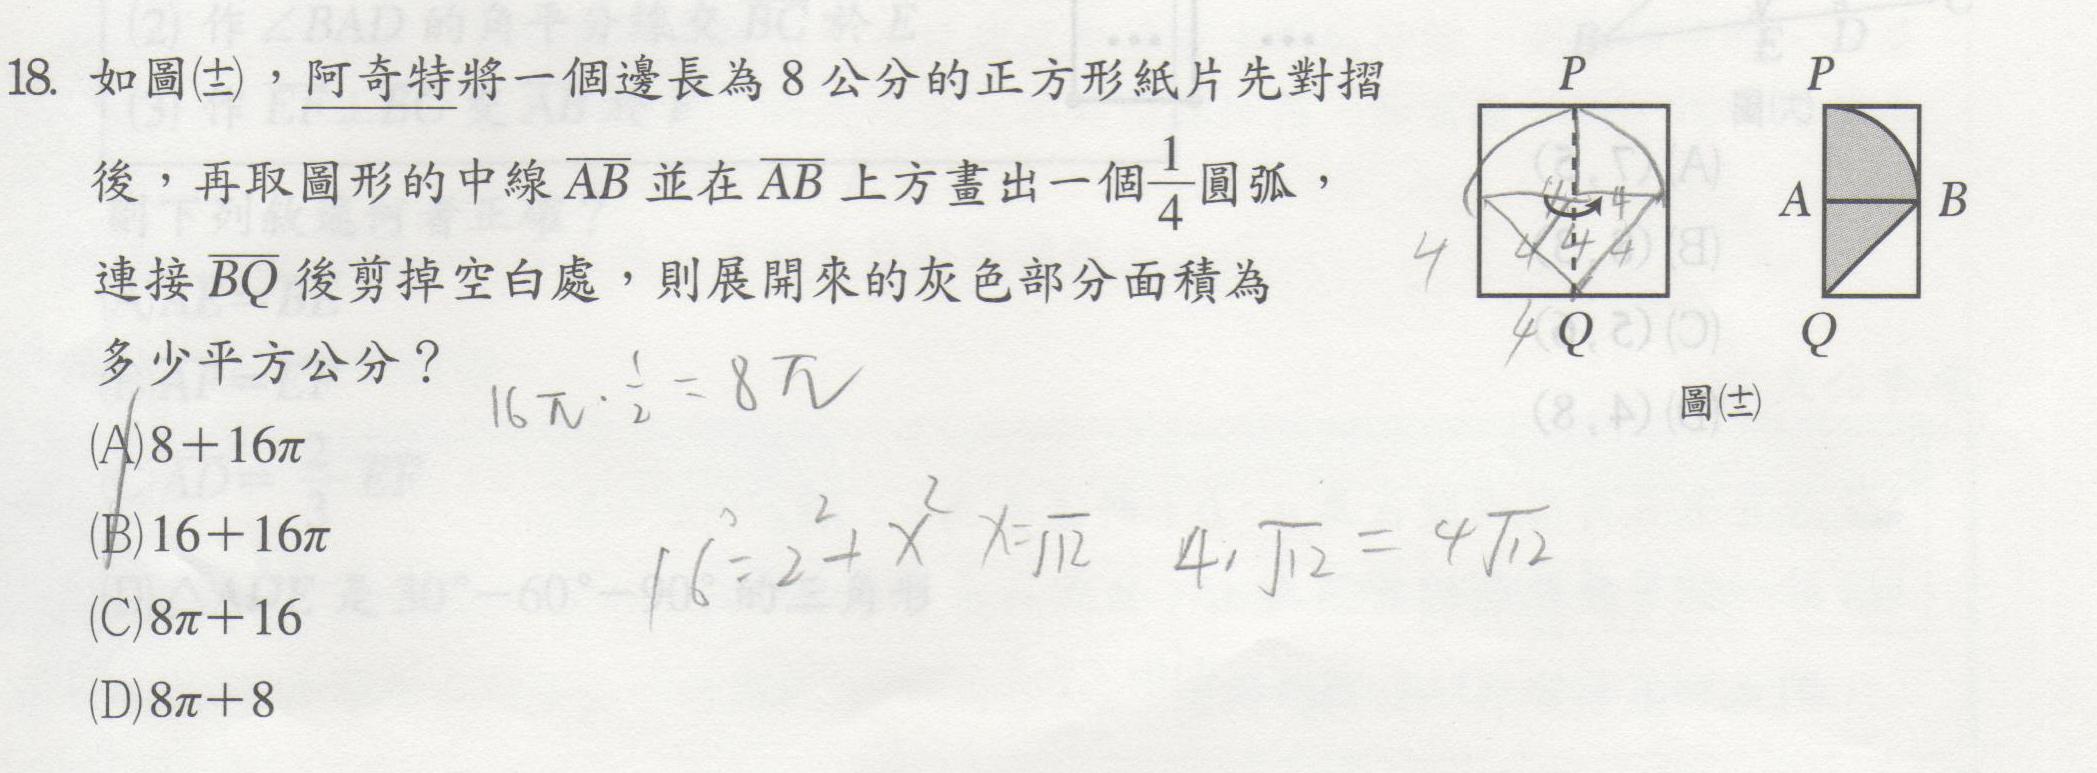 18. 如圖(十二)，阿奇特將一個邊長為 8 公分的正方形紙片先對摺
後，再取圖形的中線 AB 並在 AB 上方畫出一個 1/4 圓弧，
連接 BQ 後剪掉空白處，則展開來的灰色部分面積為
多少平方公分？
(A) 8＋16π
(B) 16＋16π
(C) 8π＋16
(D) 8π＋8
16π · 1/2 = 8π
16 = 2² + x² x = √12 4 · √12 = 4√12
P
4 4
4 4 4
4
4
Q
P
A B
Q
圖(十二)